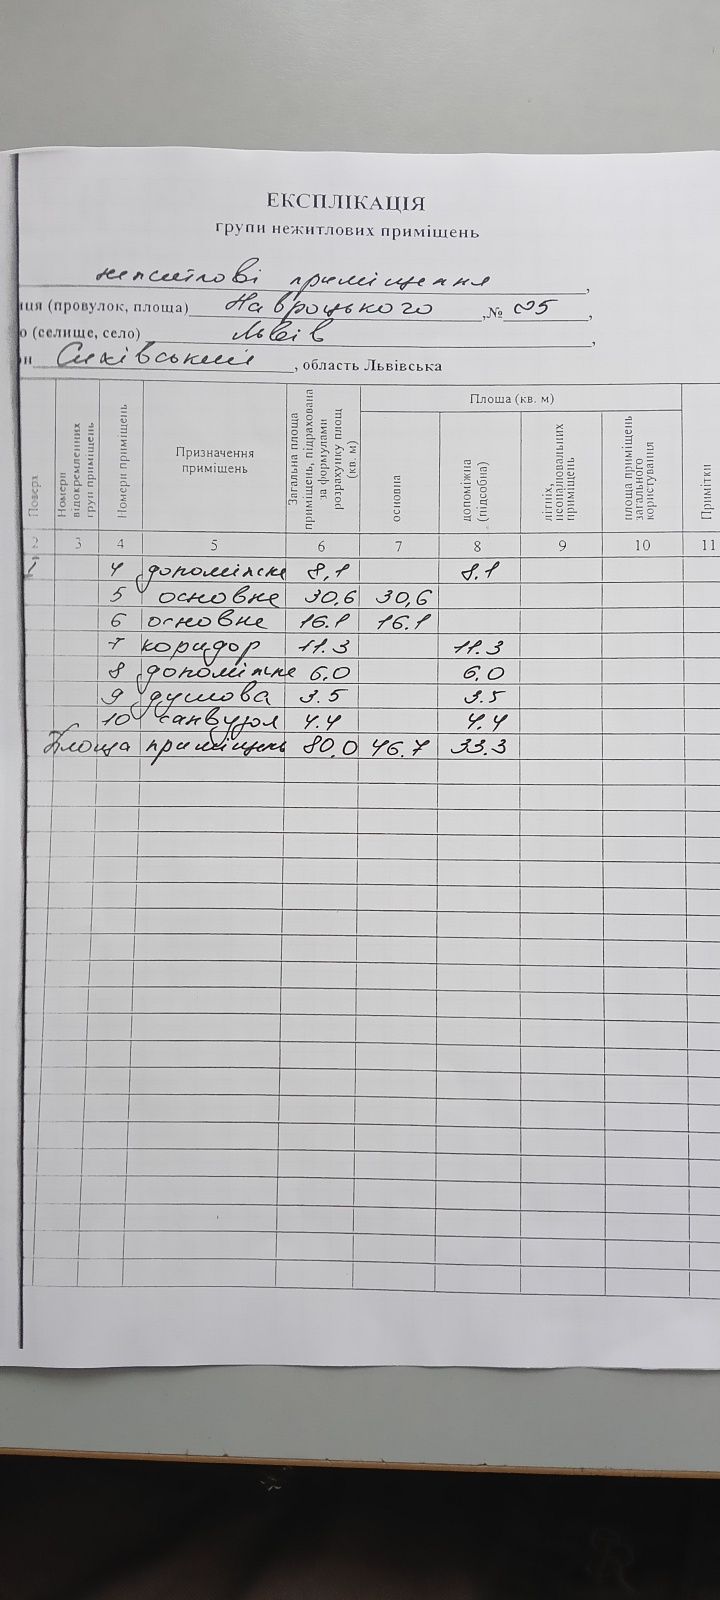 ЕКСПЛІКАЦІЯ
групи нежитлових приміщень
нежитлові приміщення,
иця (провулок, площа) Навроцького, № 25,
о (селище, село) Львів,
н Сихівський, область Львівська
Поверх
Номери відокремленних груп приміщень
Номери приміщень
Призначення приміщень
Загальна площа приміщень, підрахована за формулами розрахунку площ (кв. м)
Площа (кв. м)
основна
допоміжна (підсобна)
літніх, неопалювальних приміщень
площа приміщень загального користування
Примітки
2 3 4 5 6 7 8 9 10 11
1 4 допоміжне 8,1 8.1
5 основне 30,6 30,6
6 основне 16.1 16.1
7 коридор 11.3 11.3
8 допоміжне 6.0 6.0
9 душова 3.5 3.5
10 санвузол 4.4 4.4
Площа приміщень 80.0 46.7 33.3